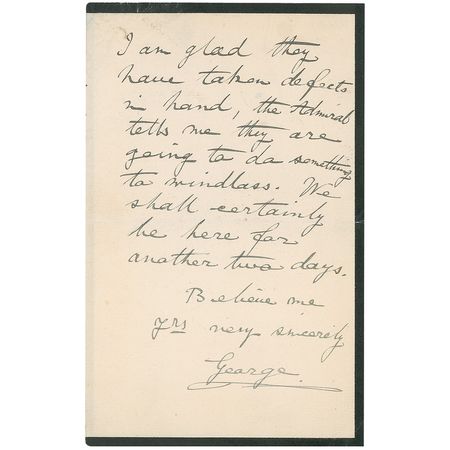 I am glad they
have taken defects
in hand, the Admiral
tells me they are
going to do something
to windlass. We
shall certainly
be here for
another two days.
Believe me
yrs very sincerely
George.